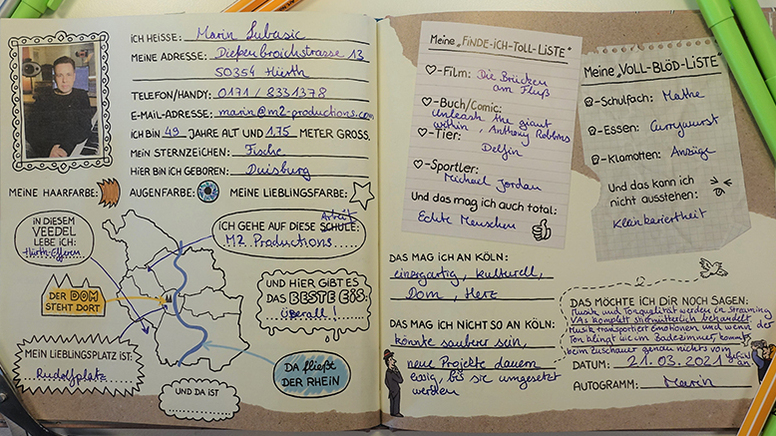 ICH HEISSE: Marin Subasic
MEINE ADRESSE: Diepenbroichstrasse 13
50354 Hürth
TELEFON/HANDY: 0171 / 8331378
E-MAIL-ADRESSE: marin@m2-productions.com
ICH BIN 49 JAHRE ALT UND 1,75 METER GROSS.
MEIN STERNZEICHEN: Fische
HIER BIN ICH GEBOREN: Duisburg
MEINE HAARFARBE: AUGENFARBE: MEINE LIEBLINGSFARBE:
IN DIESEM
VEEDEL
LEBE ICH:
Hürth-Efferen
Arbeit
ICH GEHE AUF DIESE SCHULE:
M2 Productions
DER DOM
STEHT DORT
UND HIER GIBT ES
DAS BESTE EIS:
überall!
MEIN LIEBLINGSPLATZ IST:
Rudolfplatz
DA fließt
DER RHEIN
UND DA IST
Meine „FINDE-ICH-TOLL-LISTE“
-Film: Die Brücken
am Fluß
-Buch/Comic:
Unleash the giant
within, Anthony Robbins
-Tier:
Delfin
-Sportler:
Michael Jordan
Und das mag ich auch total:
Echte Menschen
Meine „VOLL-BLÖD-LISTE“
-Schulfach: Mathe
-Essen: Currywurst
-Klamotten: Anzüge
Und das kann ich
nicht ausstehen:
Kleinkariertheit
DAS MAG ICH AN KÖLN:
einzigartig, kulturell,
Dom, Herz
DAS MAG ICH NICHT SO AN KÖLN:
könnte sauberer sein,
neue Projekte dauern
ewig, bis sie umgesetzt
werden
DAS MÖCHTE ICH DIR NOCH SAGEN:
Musik und Tonqualität werden in Streaming
VAs komplett stiefmütterlich behandelt
Musik transportiert Emotionen und wenn der
Ton klingt wie im Badezimmer, kommt
beim Zuschauer genau nichts von
an
DATUM: 21.03.2021
AUTOGRAMM: Marin